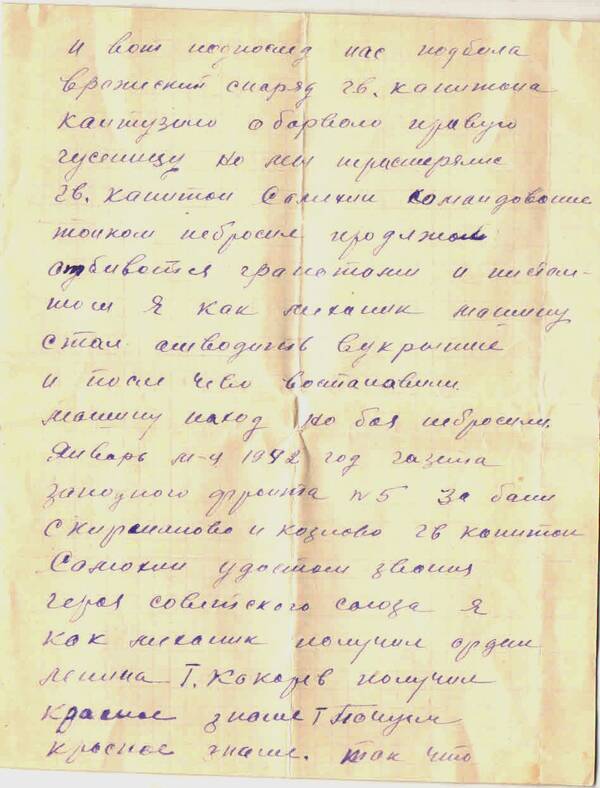 и вот подпослд нас подбила
вражиский снаряд гв. капитона
кантузило оборвало правую
гусеницу но мы
гв. капитон Самохин командование
тонком небросил продлжол
отбиватся гранатами и пистал-
том Я как миханик машину
стал атводить вукрытие
и после чево востанавили
машину наход но боя небросили
Январь м-ц 1942 год газета
западного фронта №5 За баии
Скирманово и козлово гв капитон
Самохин удостоин звания
героя советского союза Я
как миханик получил ордин
ленина Т. Какарев получил
красное знаме Т
красное знаме. так что